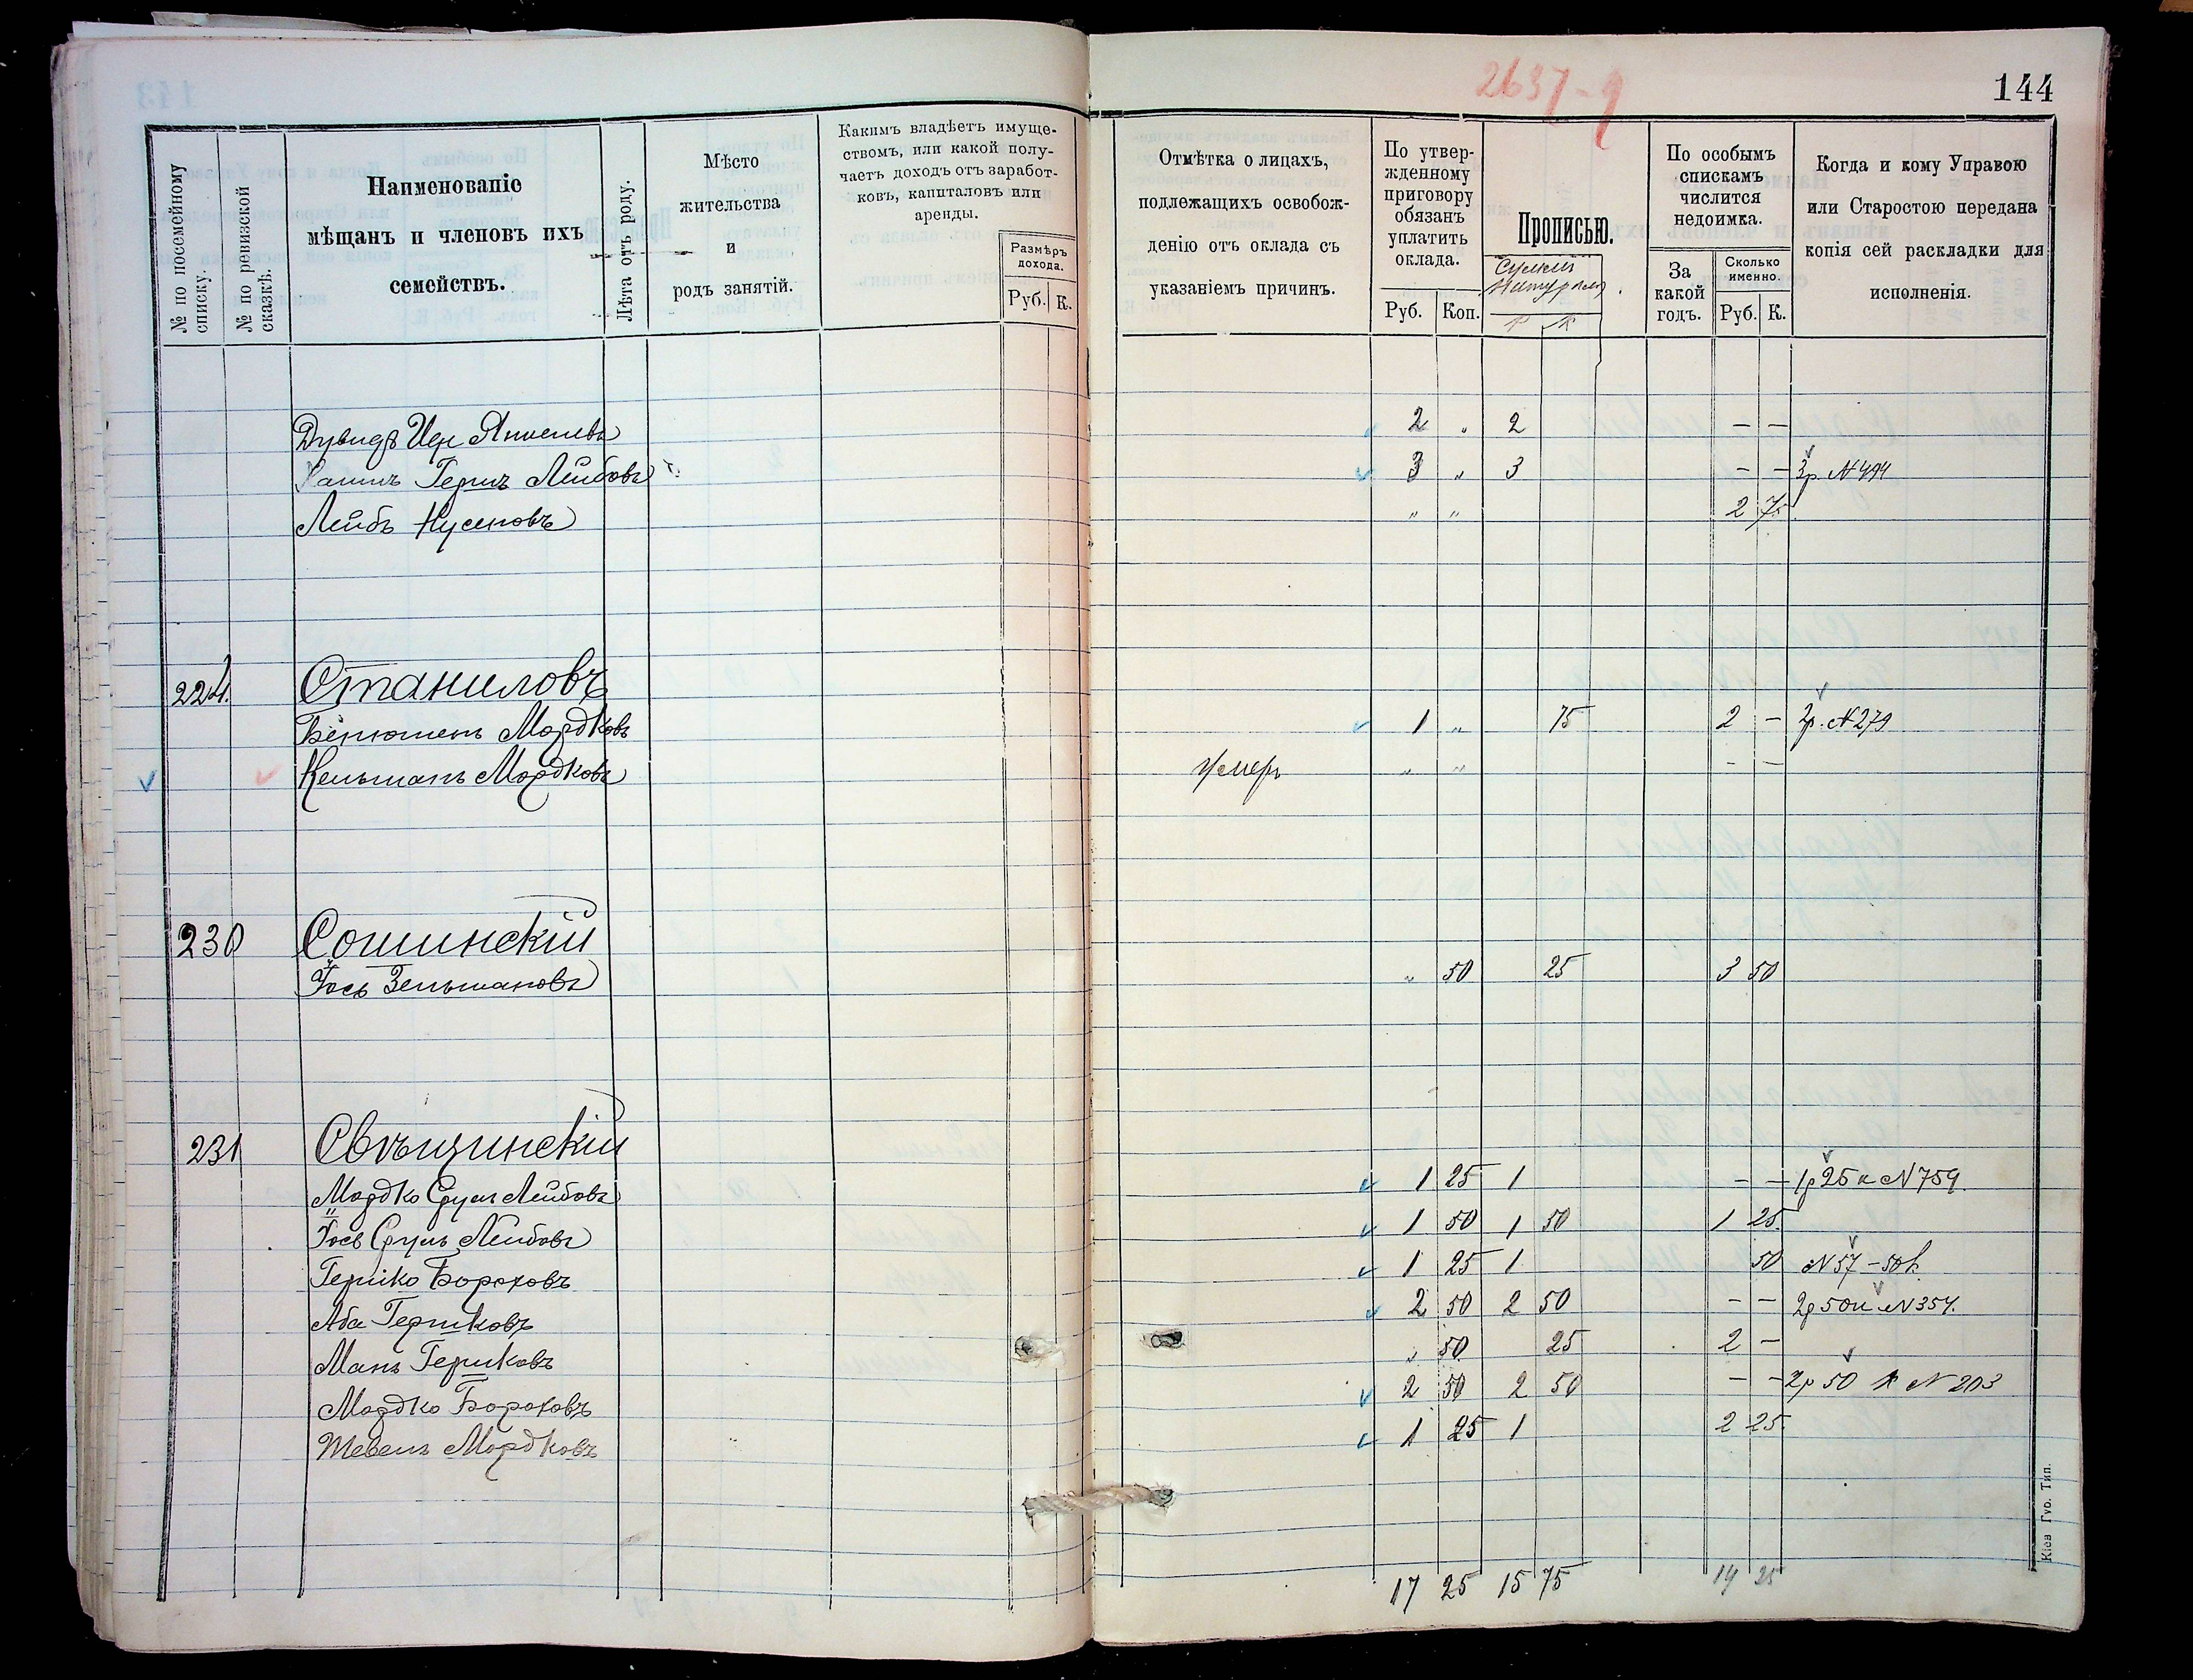 2637-9
144
№ по посемейному списку.
№ по ревизской сказкѣ.
Наименованіе
мѣщанъ и членовъ ихъ
семействъ.
Лѣта отъ роду.
Мѣсто
жительства
и
родъ занятій.
Какимъ владѣетъ имуще-
ствомъ, или какой полу-
чаетъ доходъ отъ заработ-
ковъ, капиталовъ или
аренды.
Размѣръ
дохода.
Руб. К.
Отмѣтка о лицахъ,
подлежащихъ освобож-
денію отъ оклада съ
указаніемъ причинъ.
По утвер-
жденному
приговору
обязанъ
уплатить
оклада.
Руб. Коп.
Прописью.
Р К
По особымъ
спискамъ
числится
недоимка.
За
какой
годъ.
Сколько
именно.
Руб. К.
Когда и кому Управою
или Старостою передана
копія сей раскладки для
исполненія.
Дувидъ Иц. Янкелевъ 2 „ 2 — —
Хаимъ Гершъ Лейбовъ 3 „ 3 — — 3р. №494
Лейбъ Нусеновъ „ „ 2 75
224. Станиловъ
Бенюменъ Мордковъ 1 „ 75 2 — 2р. №279
Кельманъ Мордковъ Умеръ „ „ — —
230 Сошинскій
Іось Зельмановъ „ 50 25 3 50
231 Свѣчинскій
Мордко Сруль Лейбовъ 1 25 1 — — 1р 25 к №759.
Іось Сруль Лейбовъ 1 50 1 50 1 25.
Гершко Бороховъ 1 25 1 50 №57 – 50к.
Аба Гершковъ 2 50 2 50 — — 2р 50к №354.
Мань Гершковъ „ 50 25 2 —
Мордко Бороховъ 2 50 2 50 — — 2р 50 к №203
Шевель Мордковъ 1 25 1 2 25.
17 25 15 75 14 25
Кіев Губ. Тип.